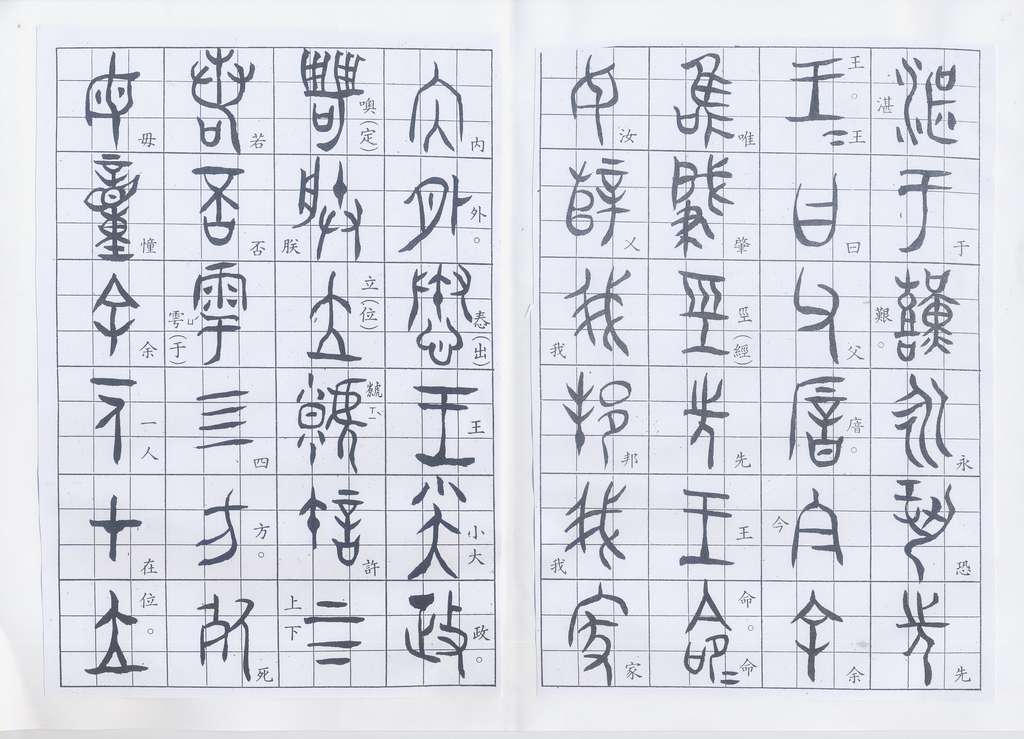 湛于艱。永恐先
王。王曰父今余
唯肇巠(經)先王命。命
汝乂我邦我家
內外。惷(出)王小大政。
噢(定)朕立(位)虩許上下
若否雩(于)四方。死
毋憧余一人在位。